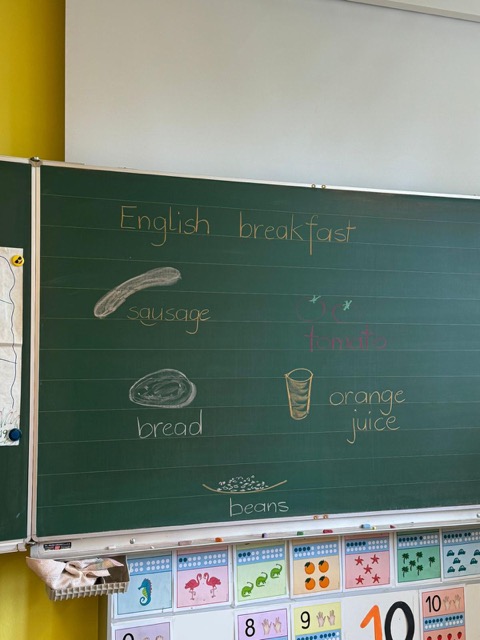 English breakfast
sausage
tomato
bread
orange
juice
beans
8
9
10
10